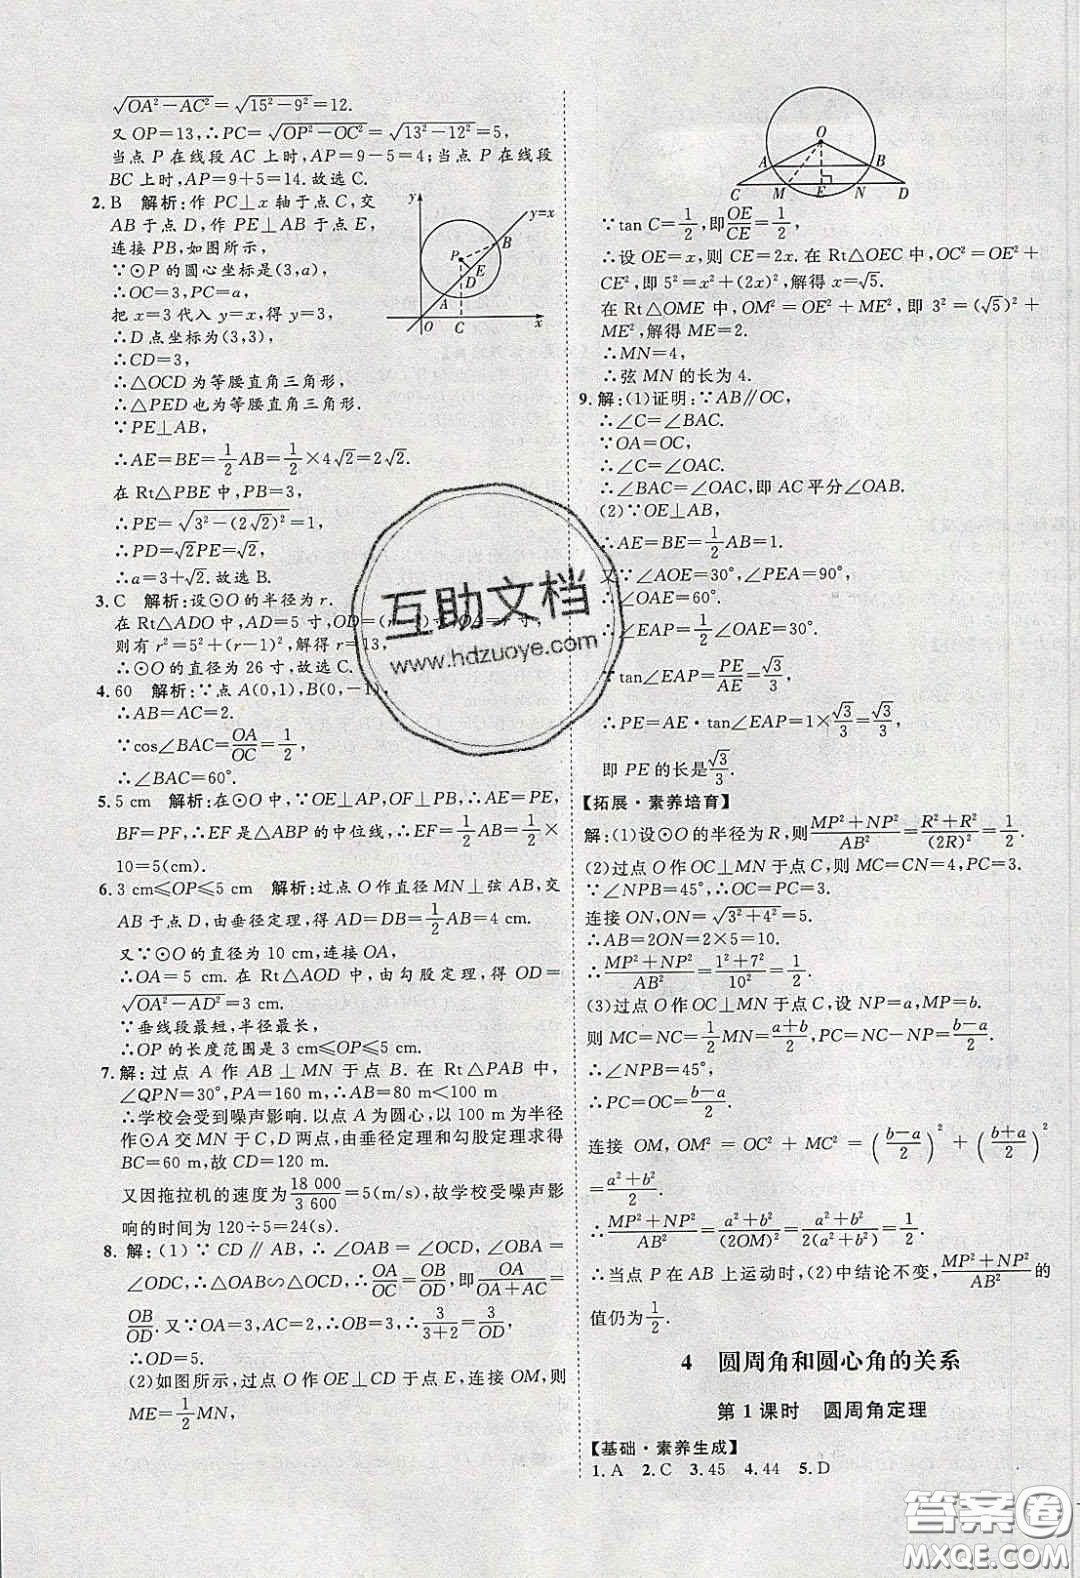 √(OA²－AC²)＝√(15²－9²)＝12.
又 OP＝13,∴PC＝√(OP²－OC²)＝√(13²－12²)＝5,
当点 P 在线段 AC 上时,AP＝9－5＝4;当点 P 在线段
BC 上时,AP＝9＋5＝14.故选 C.
2.B 解析:作 PC⊥x 轴于点 C,交
AB 于点 D,作 PE⊥AB 于点 E,
连接 PB,如图所示,
∵⊙P 的圆心坐标是(3,a),
∴OC＝3,PC＝a,
把 x＝3 代入 y＝x,得 y＝3,
∴D 点坐标为(3,3),
∴CD＝3,
∴△OCD 为等腰直角三角形,
∴△PED 也为等腰直角三角形.
∵PE⊥AB,
∴AE＝BE＝1/2 AB＝1/2×4√2＝2√2.
在 Rt△PBE 中,PB＝3,
∴PE＝√(3²－(2√2)²)＝1,
∴PD＝√2PE＝√2,
∴a＝3＋√2.故选 B.
y
y=x
P
B
E
D
A
O
C
x
3.C 解析:设⊙O 的半径为 r.
在 Rt△ADO 中,AD＝5 寸,OD＝(r
则有 r²＝5²＋(r－1)²,解得 r＝13,
∴⊙O 的直径为 26 寸,故选 C.
4.60 解析:∵点 A(0,1),B(0,－1),
∴AB＝AC＝2.
∵cos∠BAC＝OA/OC＝1/2,
∴∠BAC＝60°.
5.5 cm 解析:在⊙O 中,∵OE⊥AP,OF⊥PB,∴AE＝PE,
BF＝PF,∴EF 是△ABP 的中位线,∴EF＝1/2 AB＝1/2×
10＝5(cm).
6.3 cm≤OP≤5 cm 解析:过点 O 作直径 MN⊥弦 AB,交
AB 于点 D,由垂径定理,得 AD＝DB＝1/2 AB＝4 cm.
又∵⊙O 的直径为 10 cm,连接 OA,
∴OA＝5 cm. 在 Rt△AOD 中,由勾股定理,得 OD＝
√(OA²－AD²)＝3 cm.
∵垂线段最短,半径最长,
∴OP 的长度范围是 3 cm≤OP≤5 cm.
7.解:过点 A 作 AB⊥MN 于点 B. 在 Rt△PAB 中,
∠QPN＝30°,PA＝160 m,∴AB＝80 m＜100 m,
∴学校会受到噪声影响.以点 A 为圆心,以 100 m 为半径
作⊙A 交 MN 于 C,D 两点,由垂径定理和勾股定理求得
BC＝60 m,故 CD＝120 m.
又因拖拉机的速度为18 000/3 600＝5(m/s),故学校受噪声影
响的时间为 120÷5＝24(s).
8.解:(1)∵CD∥AB,∴∠OAB＝∠OCD,∠OBA＝
∠ODC,∴△OAB∽△OCD,∴OA/OC＝OB/OD,即OA/(OA＋AC)＝
OB/OD.又∵OA＝3,AC＝2,∴OB＝3,∴3/(3＋2)＝3/OD,
∴OD＝5.
(2)如图所示,过点 O 作 OE⊥CD 于点 E,连接 OM,则
ME＝1/2 MN,
O
A
B
C
M
E
N
D
∵tan C＝1/2,即OE/CE＝1/2,
∴设 OE＝x,则 CE＝2x. 在 Rt△OEC 中,OC²＝OE²＋
CE²,即 5²＝x²＋(2x)²,解得 x＝√5.
在 Rt△OME 中,OM²＝OE²＋ME²,即 3²＝(√5)²＋
ME²,解得 ME＝2.
∴MN＝4,
∴弦 MN 的长为 4.
9.解:(1)证明:∵AB∥OC,
∴∠C＝∠BAC.
∵OA＝OC,
∴∠C＝∠OAC.
∴∠BAC＝∠OAC,即 AC 平分∠OAB.
(2)∵OE⊥AB,
∴AE＝BE＝1/2 AB＝1.
又∵∠AOE＝30°,∠PEA＝90°,
∴∠OAE＝60°.
∴∠EAP＝1/2∠OAE＝30°.
∵tan∠EAP＝PE/AE＝√3/3,
∴PE＝AE·tan∠EAP＝1×√3/3＝√3/3,
即 PE 的长是√3/3.
【拓展·素养培育】
解:(1)设⊙O 的半径为 R,则(MP²＋NP²)/AB²＝(R²＋R²)/(2R)²＝1/2.
(2)过点 O 作 OC⊥MN 于点 C,则 MC＝CN＝4,PC＝3.
∵∠NPB＝45°,∴OC＝PC＝3.
连接 ON,ON＝√(3²＋4²)＝5.
∴AB＝2ON＝2×5＝10.
∴(MP²＋NP²)/AB²＝(1²＋7²)/10²＝1/2.
(3)过点 O 作 OC⊥MN 于点 C,设 NP＝a,MP＝b.
则 MC＝NC＝1/2 MN＝(a＋b)/2,PC＝NC－NP＝(b－a)/2.
∵∠NPB＝45°,
∴PC＝OC＝(b－a)/2.
连接 OM,OM²＝OC²＋MC²＝((b－a)/2)²＋((b＋a)/2)²
＝(a²＋b²)/2.
∴(MP²＋NP²)/AB²＝(a²＋b²)/(2OM)²＝(a²＋b²)/2(a²＋b²)＝1/2.
∴当点 P 在 AB 上运动时,(2)中结论不变,(MP²＋NP²)/AB²的
值仍为1/2.
4 圆周角和圆心角的关系
第 1 课时 圆周角定理
【基础·素养生成】
1.A 2.C 3.45 4.44 5.D
互助文档
www.hdzuoye.com
答案圈
MXQE.COM